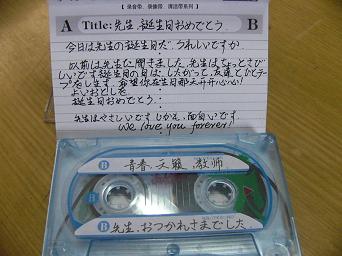 【 录音带、录像带、清洁带系列 】
A Title: 先生,誕生日おめでとう. B
今日は先生の誕生日だ、うれしいですか.
以前は先生に聞きました、先生はちょっとさび
しいです誕生日の日は.したがって、友達とひとテー
プをします、希望你在生日那天开开心心!
よいおとしを
誕生日おめでとう.
先生はやさしいです しかも、面白いです.
We love you forever!
B 青春、天籁、教师
B 先生、おつかれさまでした.